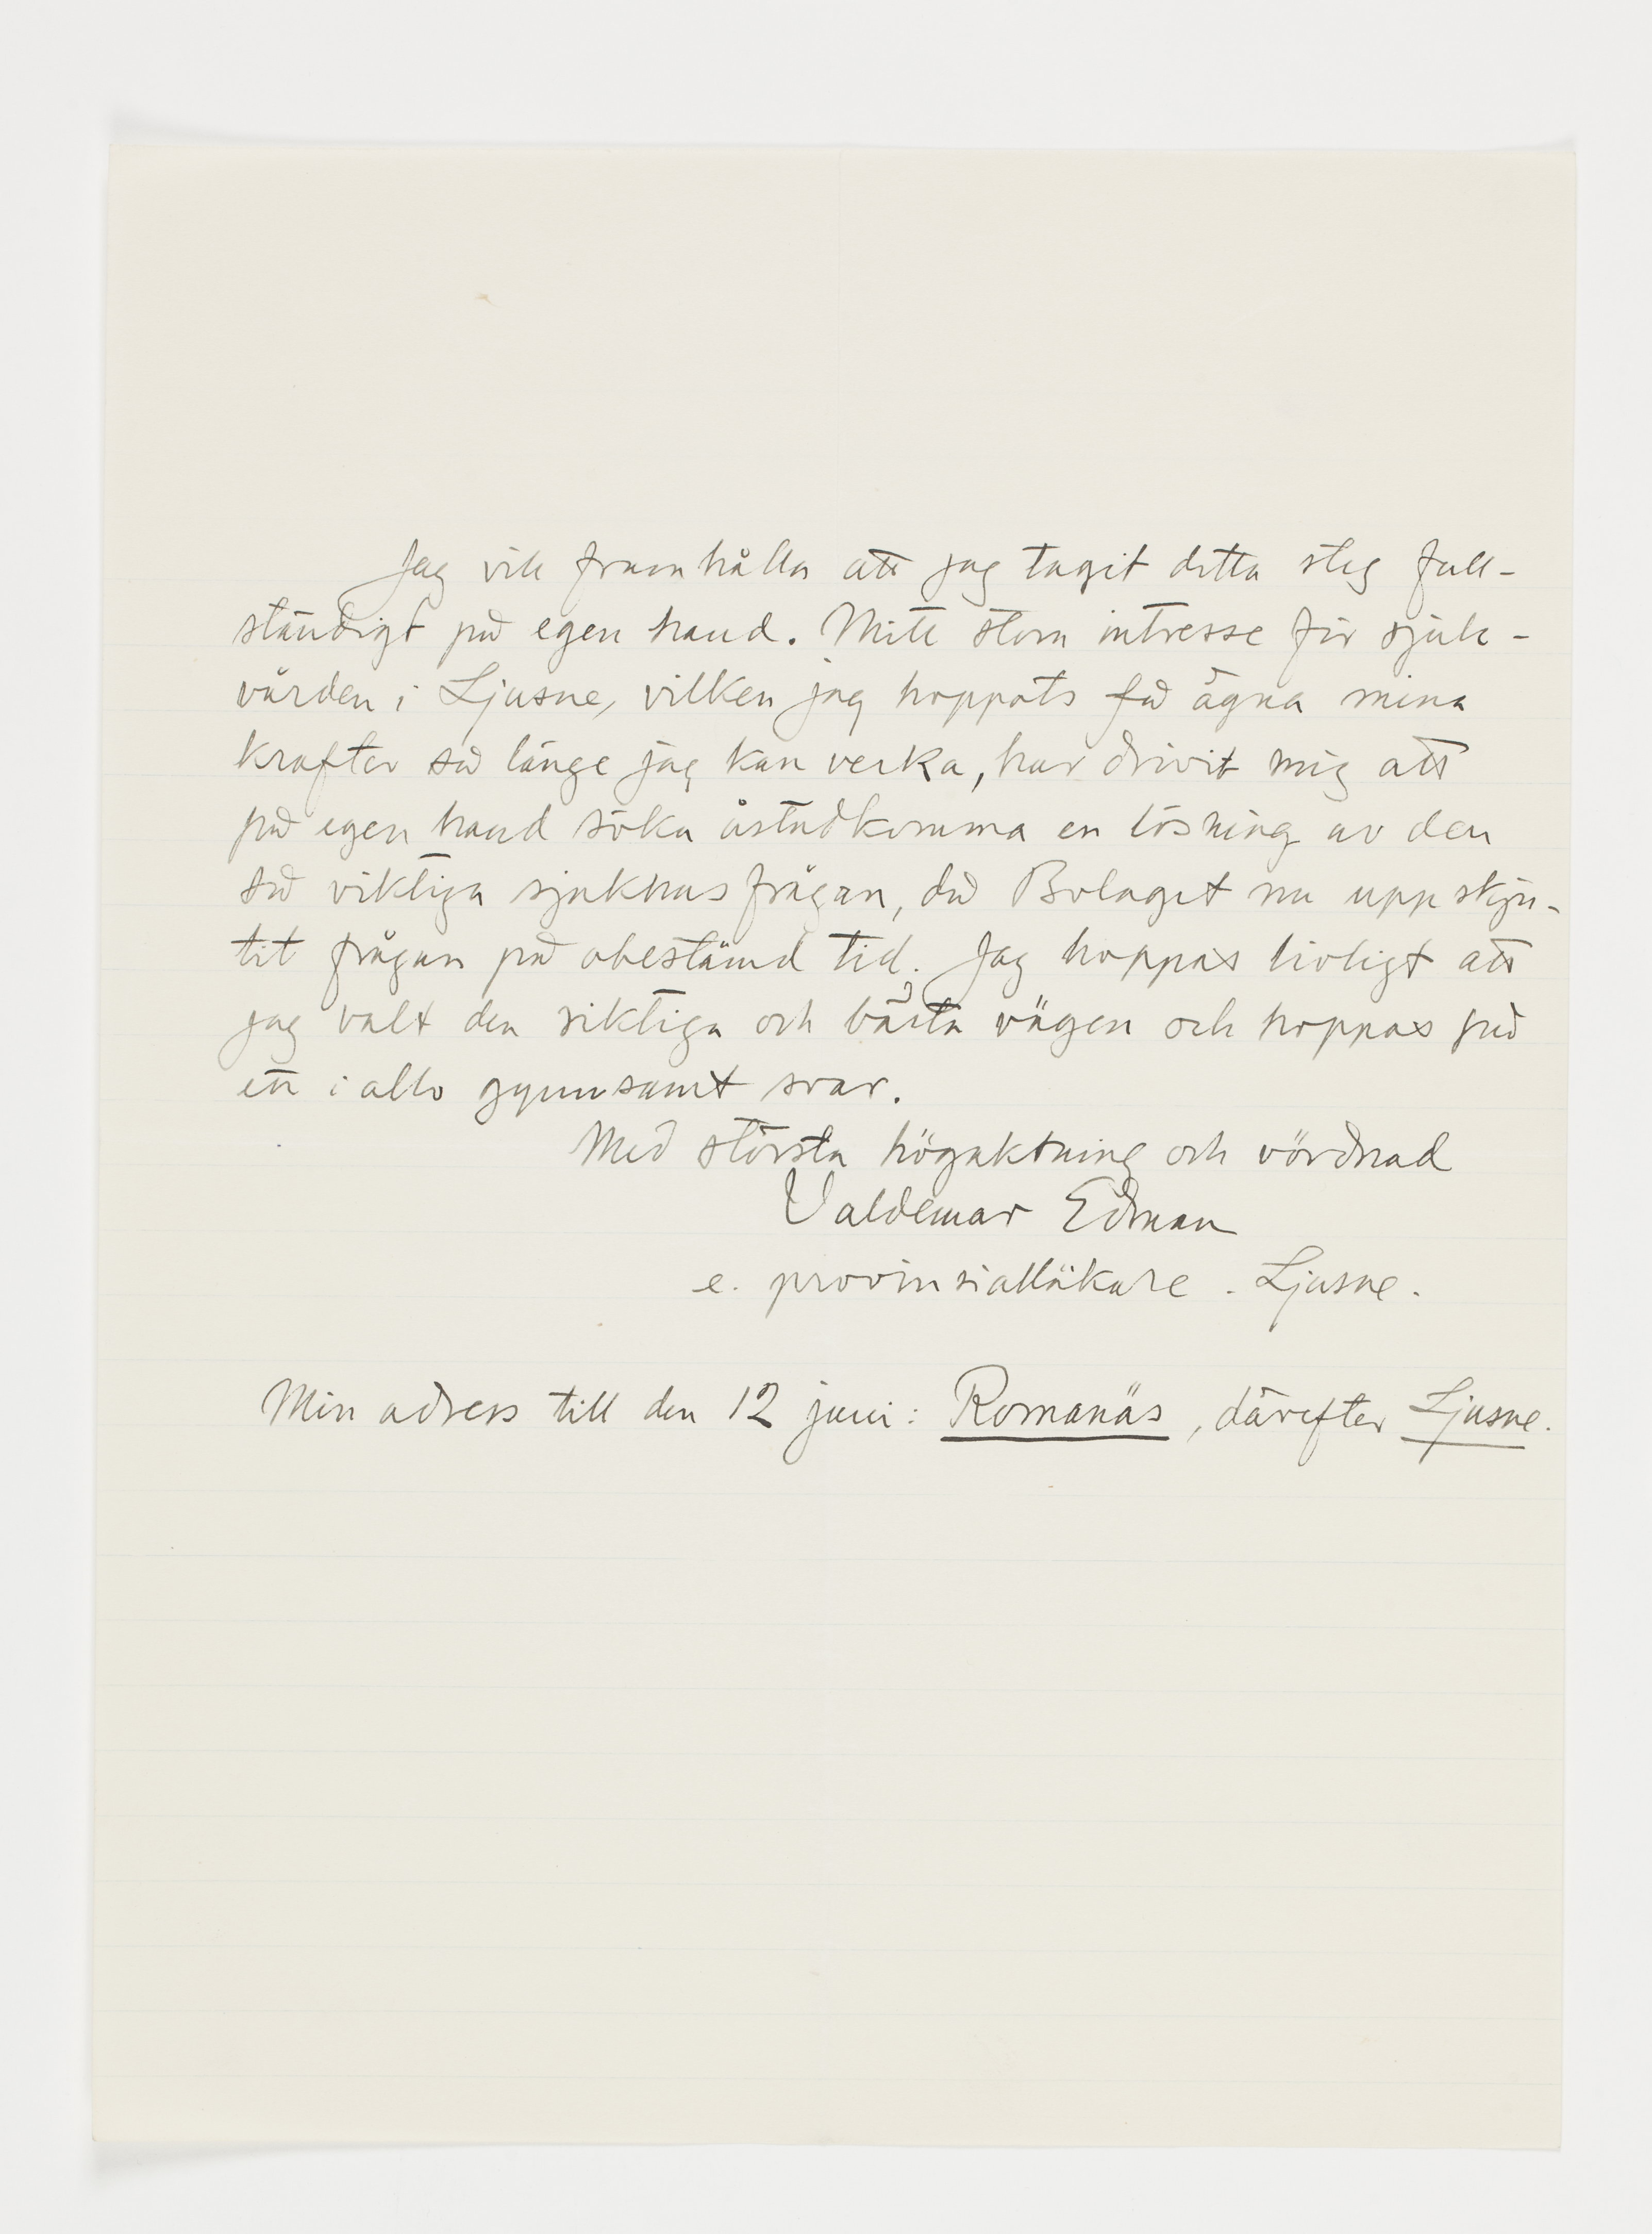 Jag vill framhålla att jag tagit detta steg full-
ständigt på egen hand. Mitt stora intresse för sjuk-
vården i Ljusne, vilken jag hoppats få ägna mina
krafter så länge jag kan verka, har drivit mig att
på egen hand söka åstadkomma en lösning av den
så viktiga sjukhusfrågan, då Bolaget nu uppskju-
tit frågan på obestämd tid. Jag hoppas livligt att
jag valt den riktiga och bästa vägen och hoppas på
ett i allo gynnsamt svar.
Med största högaktning och vördnad
Valdemar Edman
e. provinsialläkare . Ljusne .
Min adress till den 12 juni : Romanäs , därefter Ljusne.